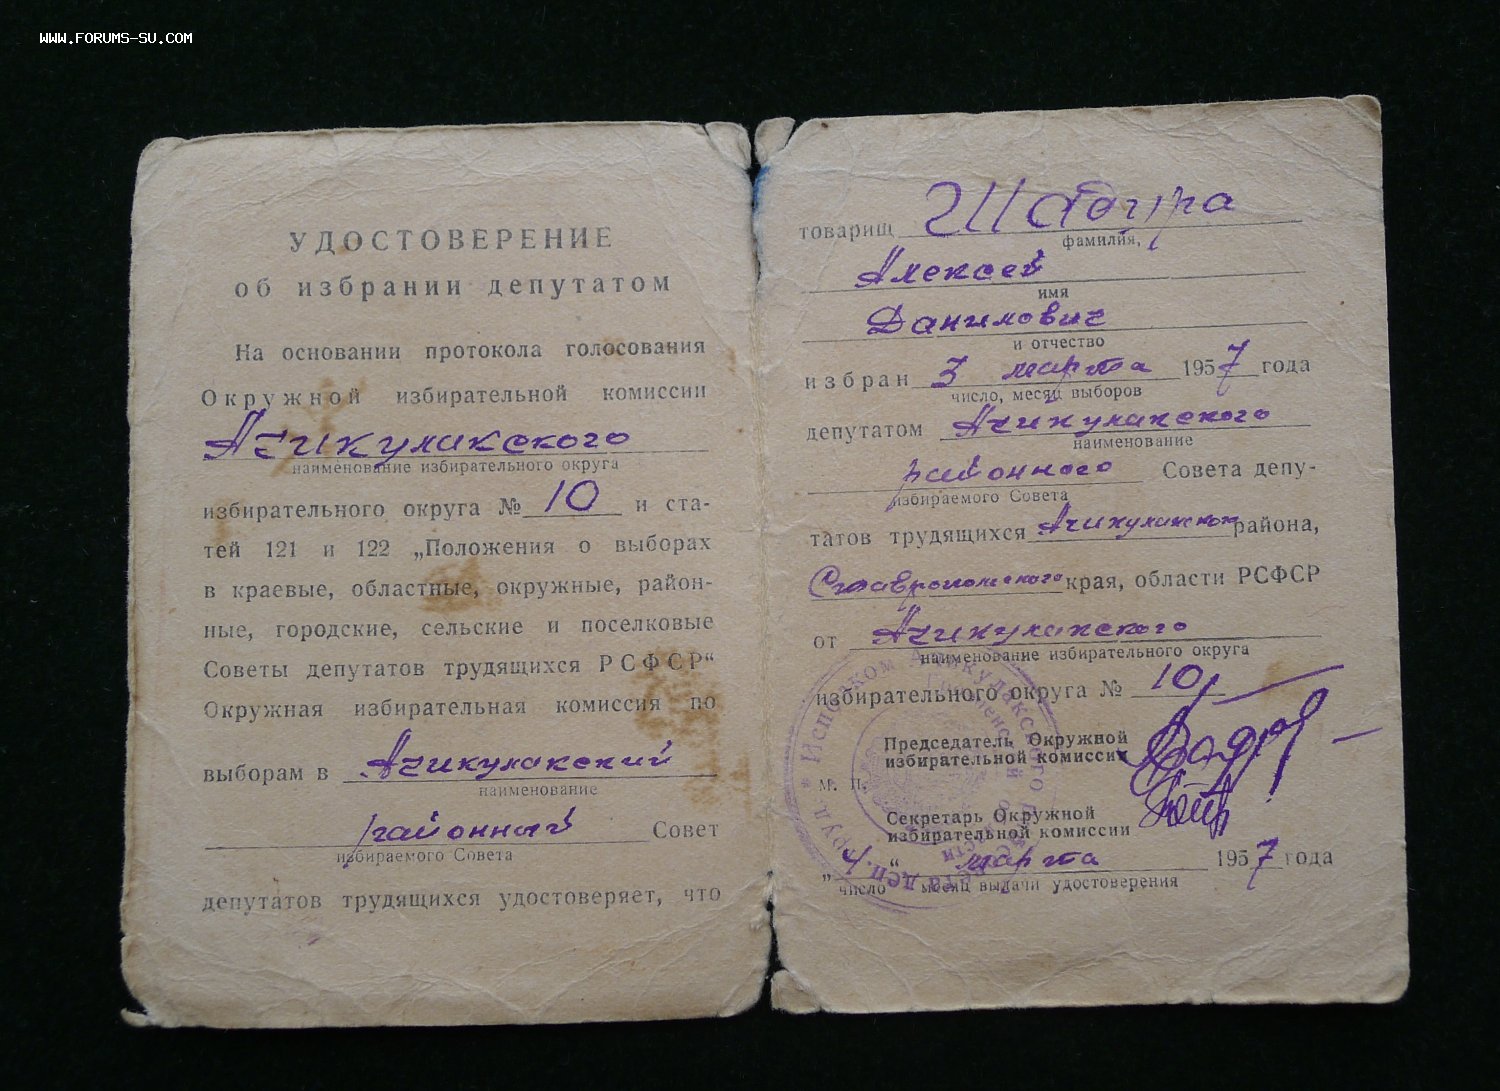 WWW.FORUMS-SU.COM
УДОСТОВЕРЕНИЕ
об избрании депутатом
На основании протокола голосования
Окружной избирательной комиссии
Ачикулакского
наименование избирательного округа
избирательного округа № 10 и ста-
тей 121 и 122 „Положения о выборах
в краевые, областные, окружные, район-
ные, городские, сельские и поселковые
Советы депутатов трудящихся РСФСР“
Окружная избирательная комиссия по
выборам в Ачикулакский
наименование
районный Совет
избираемого Совета
депутатов трудящихся удостоверяет, что
товарищ Шабура
фамилия,
Алексей
имя
Данилович
и отчество
избран 3 марта 1957 года
число, месяц выборов
депутатом Ачикулакского
наименование
районного Совета депу-
избираемого Совета
татов трудящихся Ачикулакского района,
Ставропольского края, области РСФСР
от Ачикулакского
наименование избирательного округа
избирательного округа № 10
Председатель Окружной
избирательной комиссии
М. П.
Секретарь Окружной
избирательной комиссии
„4“ марта 1957 года
число месяц выдачи удостоверения
Исполком Ачикулакского
деп. труд.